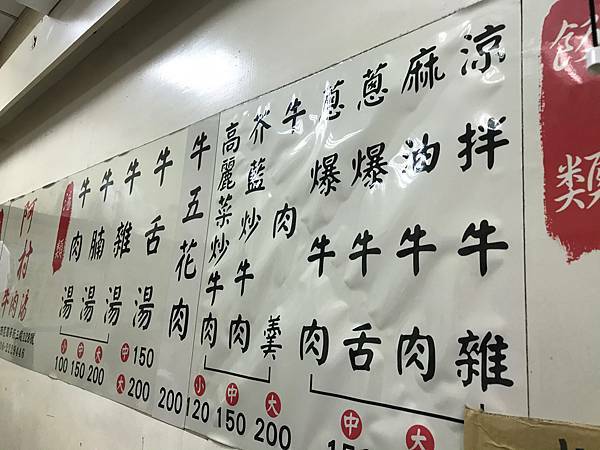 飯
類
涼拌牛雜
麻油牛肉
蔥爆牛舌
蔥爆牛肉
牛肉羹
芥藍炒牛肉
高麗菜炒牛肉
小 中 大
120 150 200
中 大
牛五花肉
200
牛舌湯
牛雜湯
牛腩湯
牛肉湯
中 150
大 200
小 中 大
100 150 200
湯類
阿村
牛肉湯